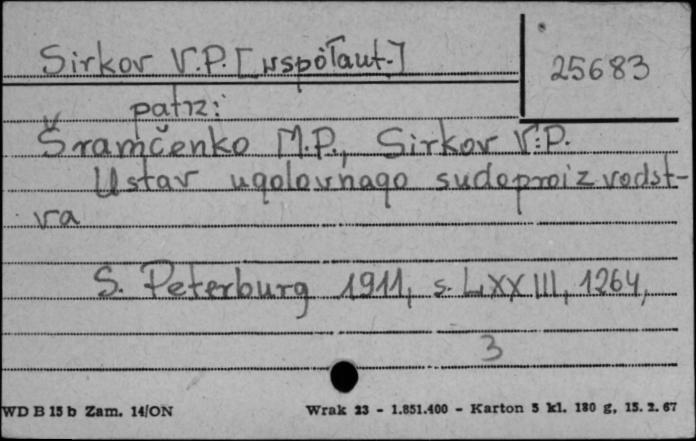 Sirkov V.P. [współaut.]
25683
patrz:
Šramčenko M.P., Sirkov V.P.
Ustav ugolovnago sudoproizvodst-
va
S. Peterburg 1911, s. LXXIII, 1264,
3
WD B 15 b Zam. 14/ON
Wrak 23 - 1.851.400 - Karton 5 kl. 180 g, 15. 2. 67